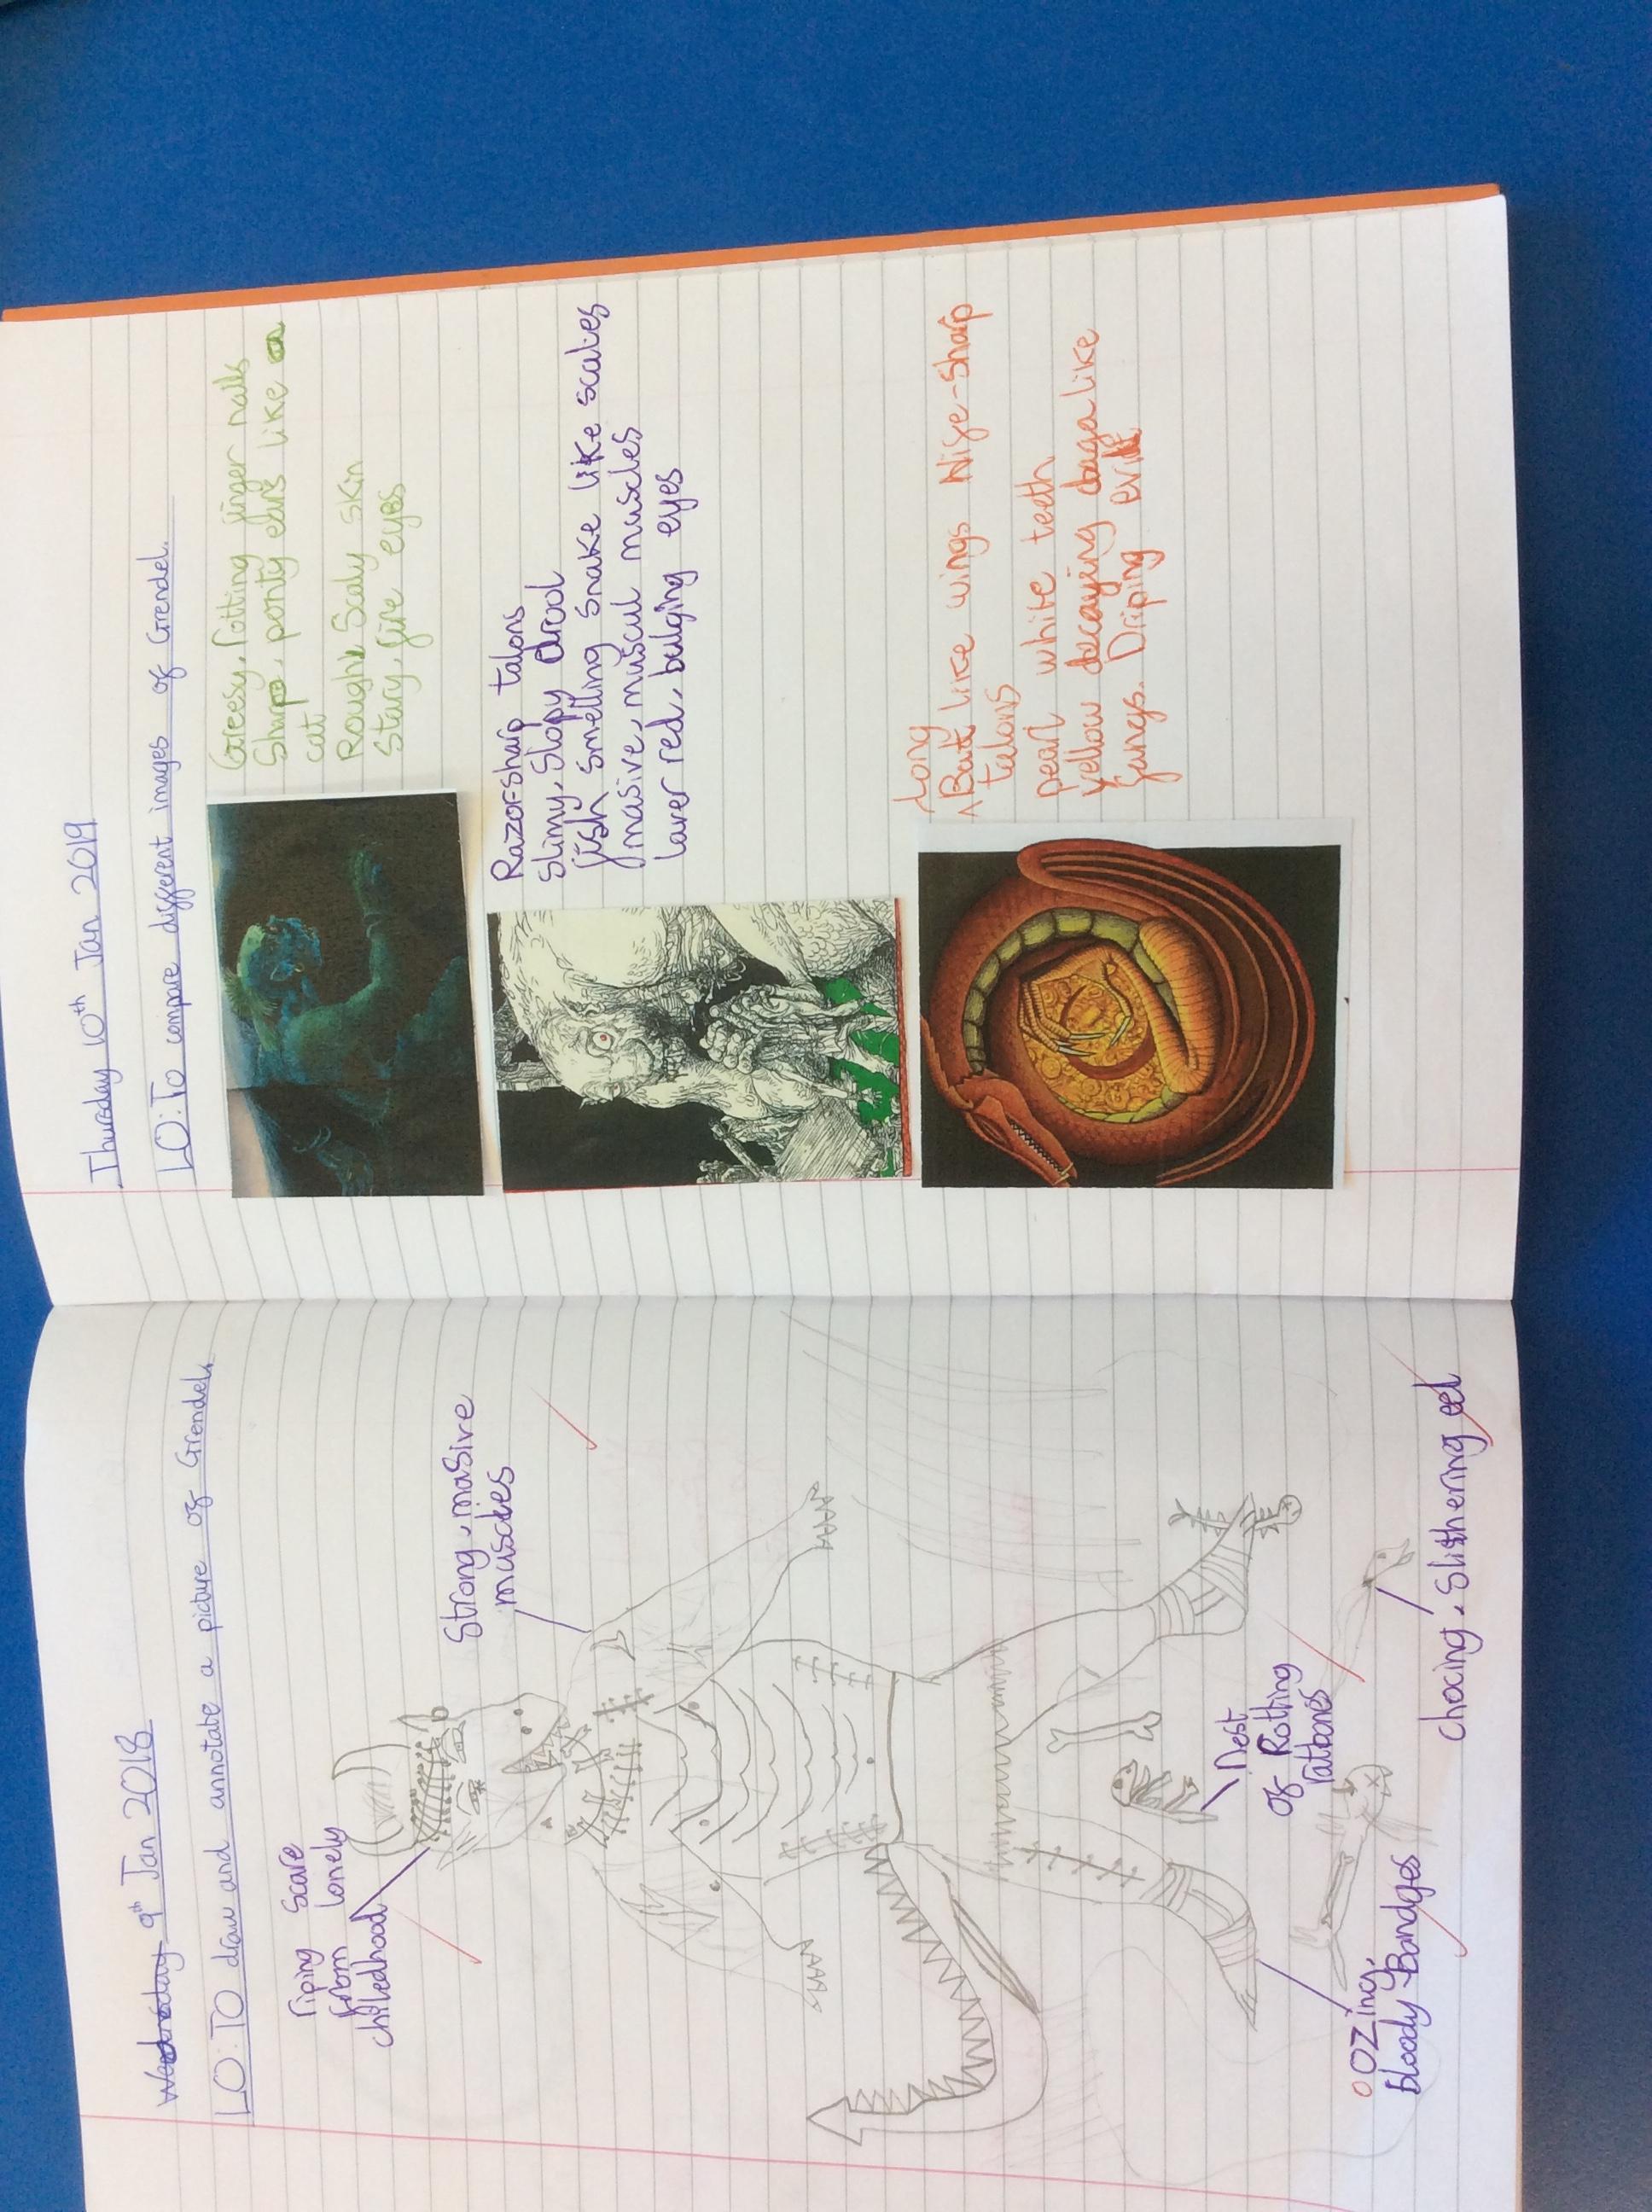 Wednesday 9th Jan 2018
LO: TO draw and annotate a picture of Grendel.
riping scare
from lonely
chiledhood
Strong, masive
muscles
Nest
of Rotting
ratbones
oOZing,
bloody Bandges
chocing, Slithering eel
Thursday 10th Jan 2019
LO: To compare different images of Grendel.
Greesy, rotting finger nails
Shrpe, ponty ears like a
cat
Rough, Scaly skin
Stary, fire eyes
Razor-sharp talons
Slimy, Slopy drool
fish smelling snake like scales
masive, muscul muscles
laver red, bulging eyes
Long
^ Bat like wings Nife-sharp
talons
pearl white teeth
yellow decaying daga like
fangs. Driping evil